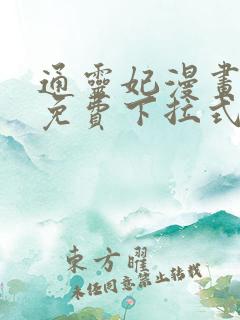 通靈妃漫畫
免費下拉式
東方曜
未經同意禁止轉載